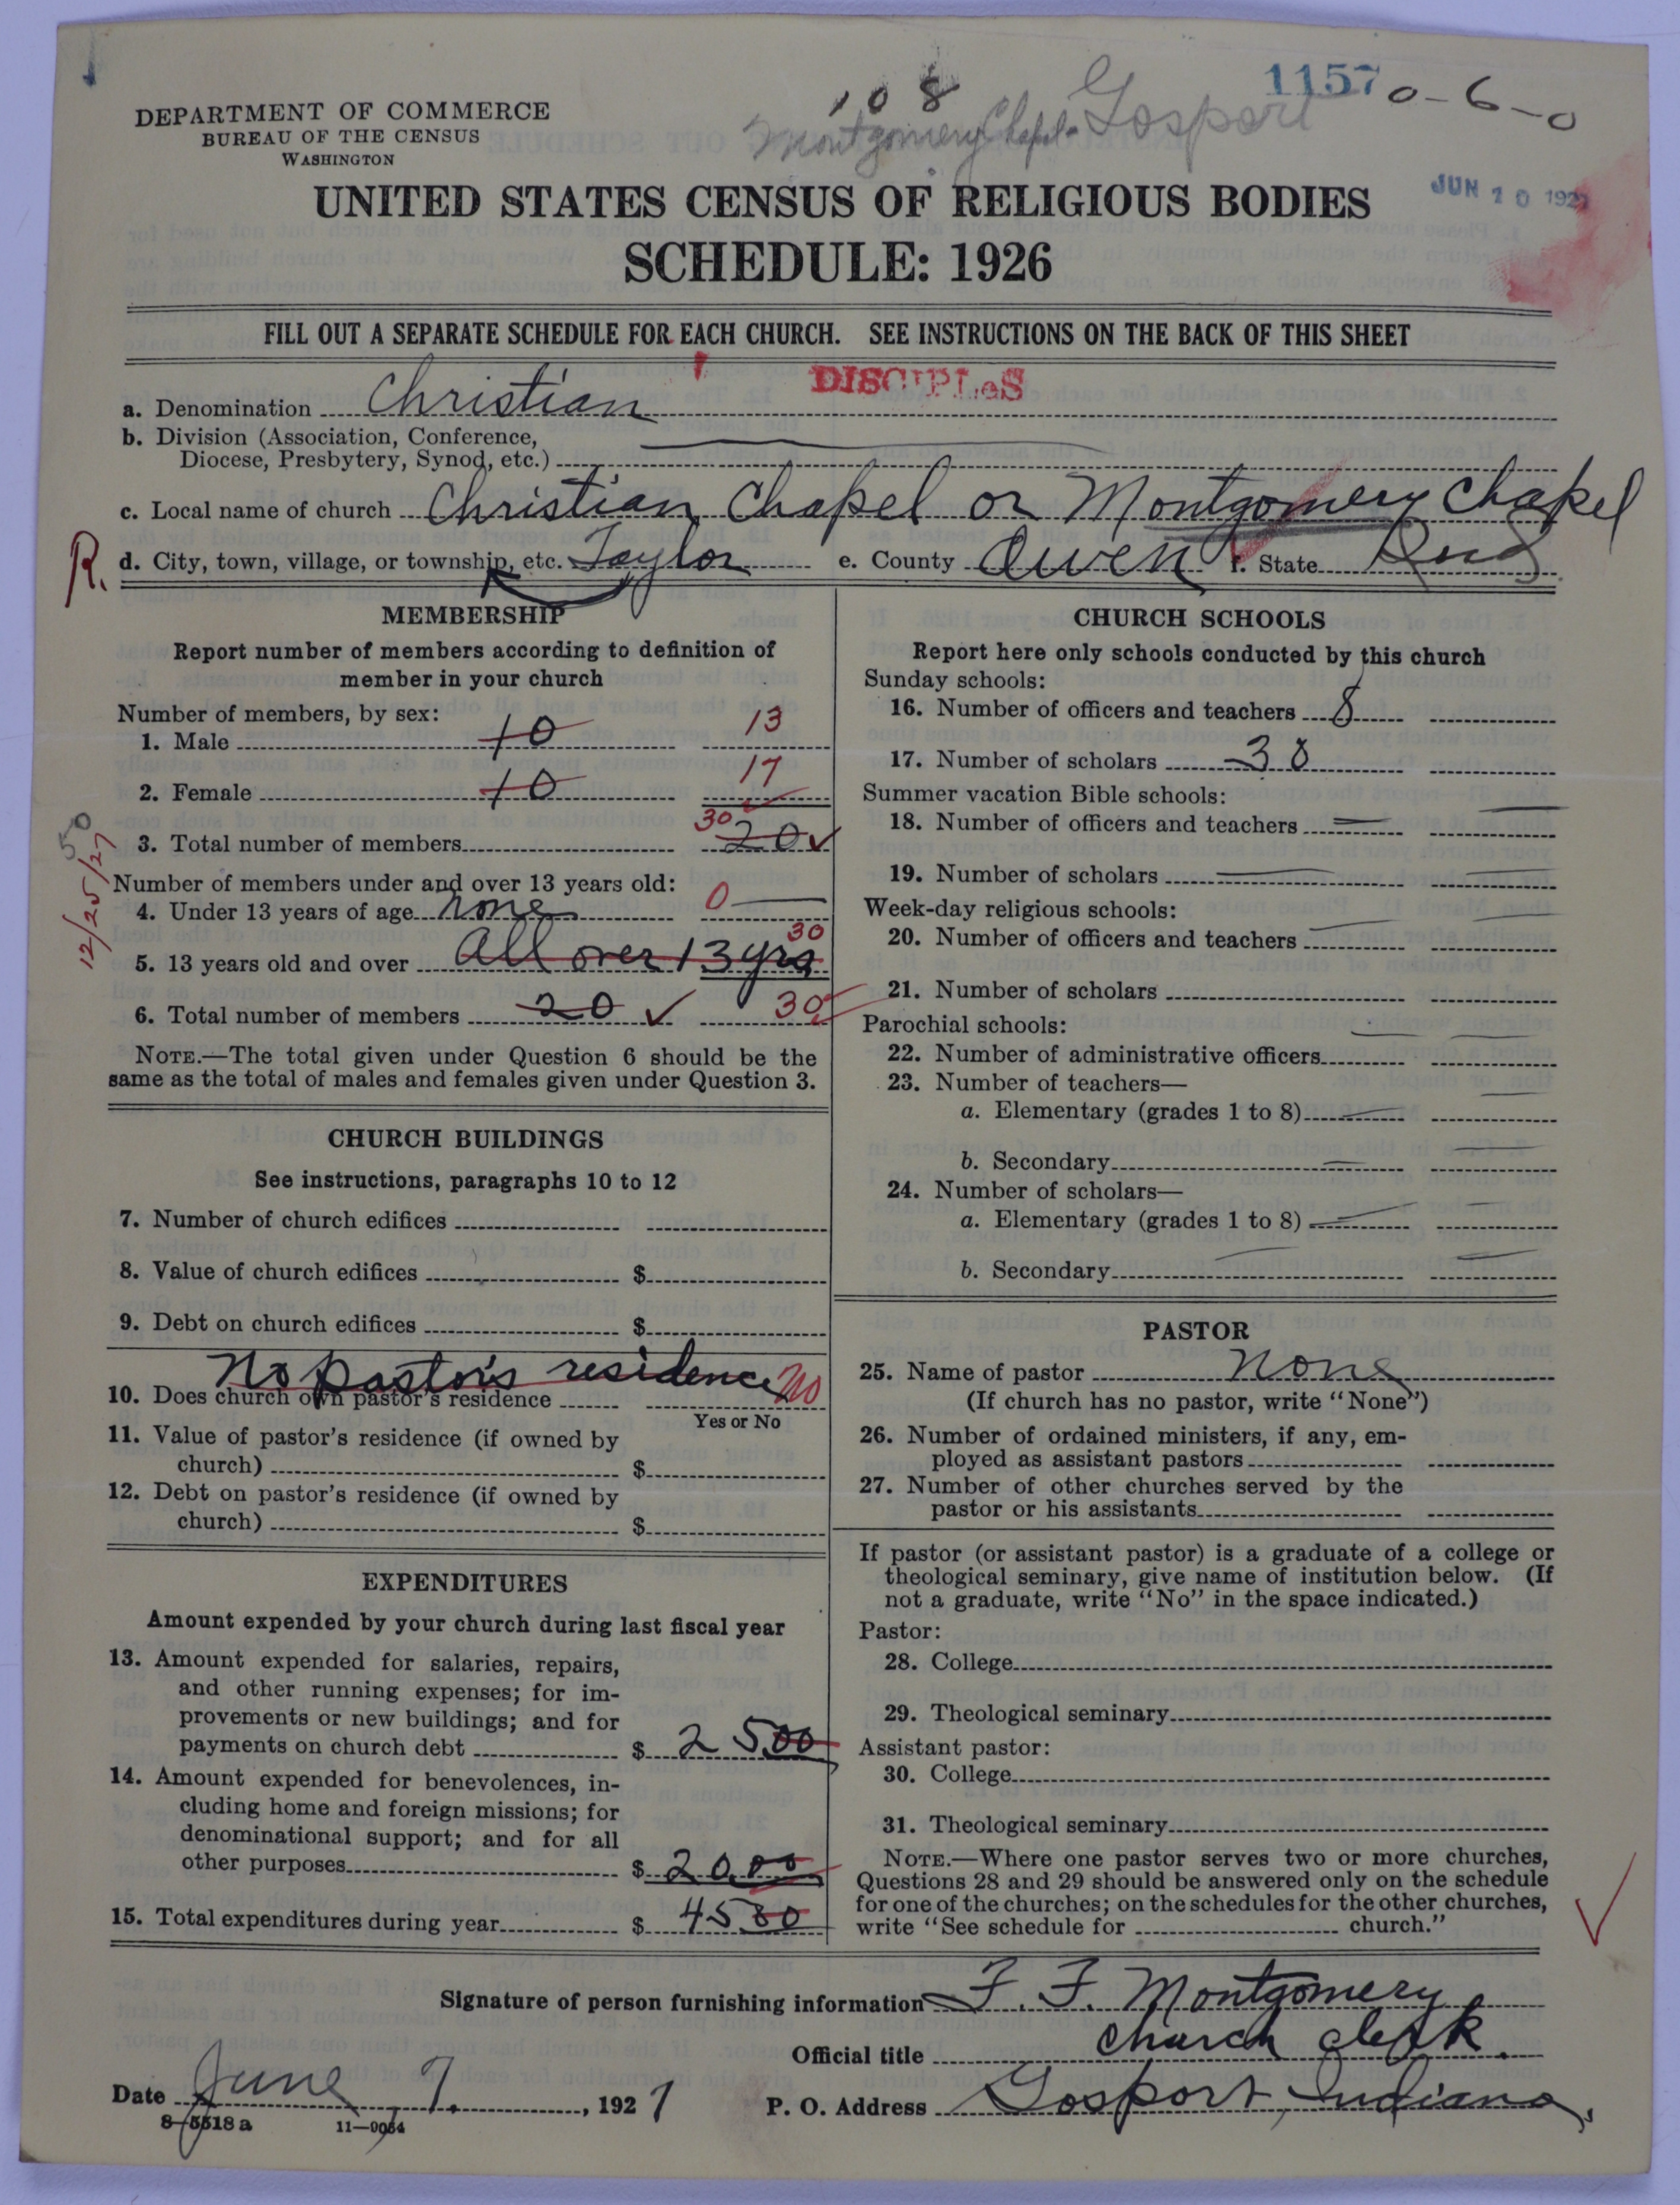 1157 0-6-0
108
Montgomery Chapel - Gosport
DEPARTMENT OF COMMERCE
BUREAU OF THE CENSUS
WASHINGTON
JUN 10 1927
UNITED STATES CENSUS OF RELIGIOUS BODIES
SCHEDULE: 1926
FILL OUT A SEPARATE SCHEDULE FOR EACH CHURCH. SEE INSTRUCTIONS ON THE BACK OF THIS SHEET
DISCIPLES
a. Denomination Christian
b. Division (Association, Conference,
Diocese, Presbytery, Synod, etc.)
c. Local name of church Christian Chapel or Montgomery Chapel
R. d. City, town, village, or township, etc. Taylor e. County Owen f. State Ind
MEMBERSHIP
Report number of members according to definition of
member in your church
Number of members, by sex:
1. Male 10 13
2. Female 10 17
3. Total number of members 30 20
50
12/25/27
Number of members under and over 13 years old:
4. Under 13 years of age none 0
5. 13 years old and over All over 13 yrs 30
6. Total number of members 20 30
NOTE.—The total given under Question 6 should be the
same as the total of males and females given under Question 3.
CHURCH BUILDINGS
See instructions, paragraphs 10 to 12
7. Number of church edifices
8. Value of church edifices $
9. Debt on church edifices $
No pastor's residence No
10. Does church own pastor's residence
Yes or No
11. Value of pastor's residence (if owned by
church) $
12. Debt on pastor's residence (if owned by
church) $
EXPENDITURES
Amount expended by your church during last fiscal year
13. Amount expended for salaries, repairs,
and other running expenses; for im-
provements or new buildings; and for
payments on church debt $ 25.00
14. Amount expended for benevolences, in-
cluding home and foreign missions; for
denominational support; and for all
other purposes $ 20.00
15. Total expenditures during year $ 45 00
CHURCH SCHOOLS
Report here only schools conducted by this church
Sunday schools:
16. Number of officers and teachers 8
17. Number of scholars 30
Summer vacation Bible schools:
18. Number of officers and teachers
19. Number of scholars
Week-day religious schools:
20. Number of officers and teachers
21. Number of scholars
Parochial schools:
22. Number of administrative officers
23. Number of teachers—
a. Elementary (grades 1 to 8)
b. Secondary
24. Number of scholars—
a. Elementary (grades 1 to 8)
b. Secondary
PASTOR
25. Name of pastor None
(If church has no pastor, write "None")
26. Number of ordained ministers, if any, em-
ployed as assistant pastors
27. Number of other churches served by the
pastor or his assistants
If pastor (or assistant pastor) is a graduate of a college or
theological seminary, give name of institution below. (If
not a graduate, write "No" in the space indicated.)
Pastor:
28. College
29. Theological seminary
Assistant pastor:
30. College
31. Theological seminary
NOTE.—Where one pastor serves two or more churches,
Questions 28 and 29 should be answered only on the schedule
for one of the churches; on the schedules for the other churches,
write "See schedule for church."
Signature of person furnishing information F. F. Montgomery
Official title church clerk.
Date June 7, 1927 P. O. Address Gosport, Indiana,
8-5518 a 11-9054